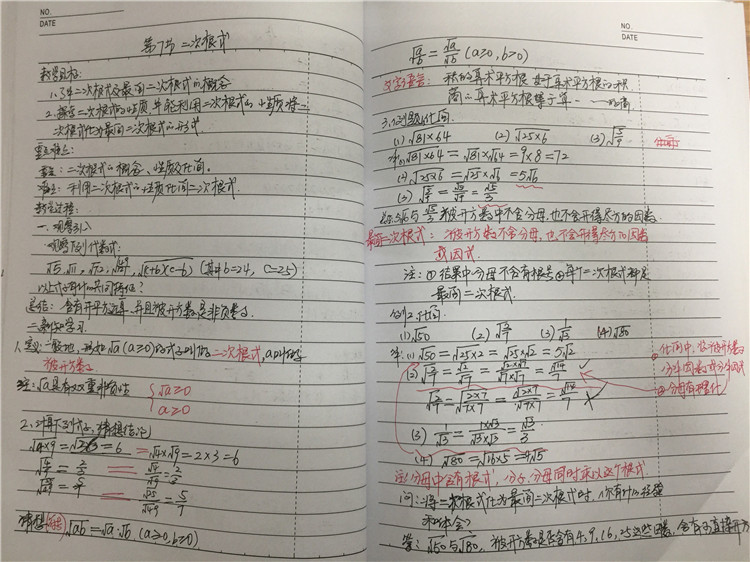 NO.
DATE
第7节 二次根式
教学目标:
1.了解二次根式及最简二次根式的概念
2.探索二次根式的性质,并能利用二次根式的性质将一
次根式化为最简二次根式的形式.
重点难点:
重点:二次根式的概念、性质及化简.
难点:利用二次根式的性质化简二次根式.
教学过程:
一.观察引入
观察下列代数式:
√5,√11,√7.2,√(49/121),√(c+b)(c-b) (其中b=24, c=25)
以上式子有什么共同特征?
总结:含有开平方运算,并且被开方数是非负数.
二.新知学习.
1.定义:一般地,形如√a(a≥0)的式子叫做二次根式,a叫做
被开方数
注:√a具有双重非负性 { √a≥0
a≥0
2.计算下列式子,猜想结论
√4×9 = 2×3 = 6 = √4×√9 = 2×3 = 6
√4/9 = 2/3 = √4/√9 = 2/3
√25/49 = 5/7 = √25/√49 = 5/7
猜想 √ab = √a·√b (a≥0, b≥0)
NO.
DATE
√a/b = √a/√b (a≥0, b>0)
文字语言: 积的算术平方根等于算术平方根的积
商的算术平方根等于算------的商
3.例1 化简
(1)√81×64 (2)√25×6 (3)√5/9
解:(1)√81×64 = √81×√64 = 9×8 = 72
(2)√25×6 = √25×√6 = 5√6
(3)√5/9 = √5/√9 = √5/3
总:5√6与√5/3 被开方数中不含分母,也不含开得尽方的因数
最简二次根式:被开方数不含分母,也不含开得尽方的因数
或因式
注:①结果中分母不含有根号②每个二次根式都是
最简二次根式.
例2.化简.
(1)√50 (2)√2/7 (3)1/√3 (4)√80
解:(1)√50 = √25×2 = √25×√2 = 5√2
(2)√2/7 = √2/√7 = √2×√7/√7×√7 = √14/7 ✓
√2/7 = √2×7/7×7 = √2×7/√7×7 = √14/7
(3)1/√3 = 1×√3/√3×√3 = √3/3
(4)√80 = √16×5 = 4√5
②分母有理化
注:分母中含有根式,分子、分母同时乘以这个根式.
问:将二次根式化为最简二次根式时,你有什么经验
和体会?
答:√50与√80,被开方数是否含有4,9,16,25这些因数,含有可直接开方